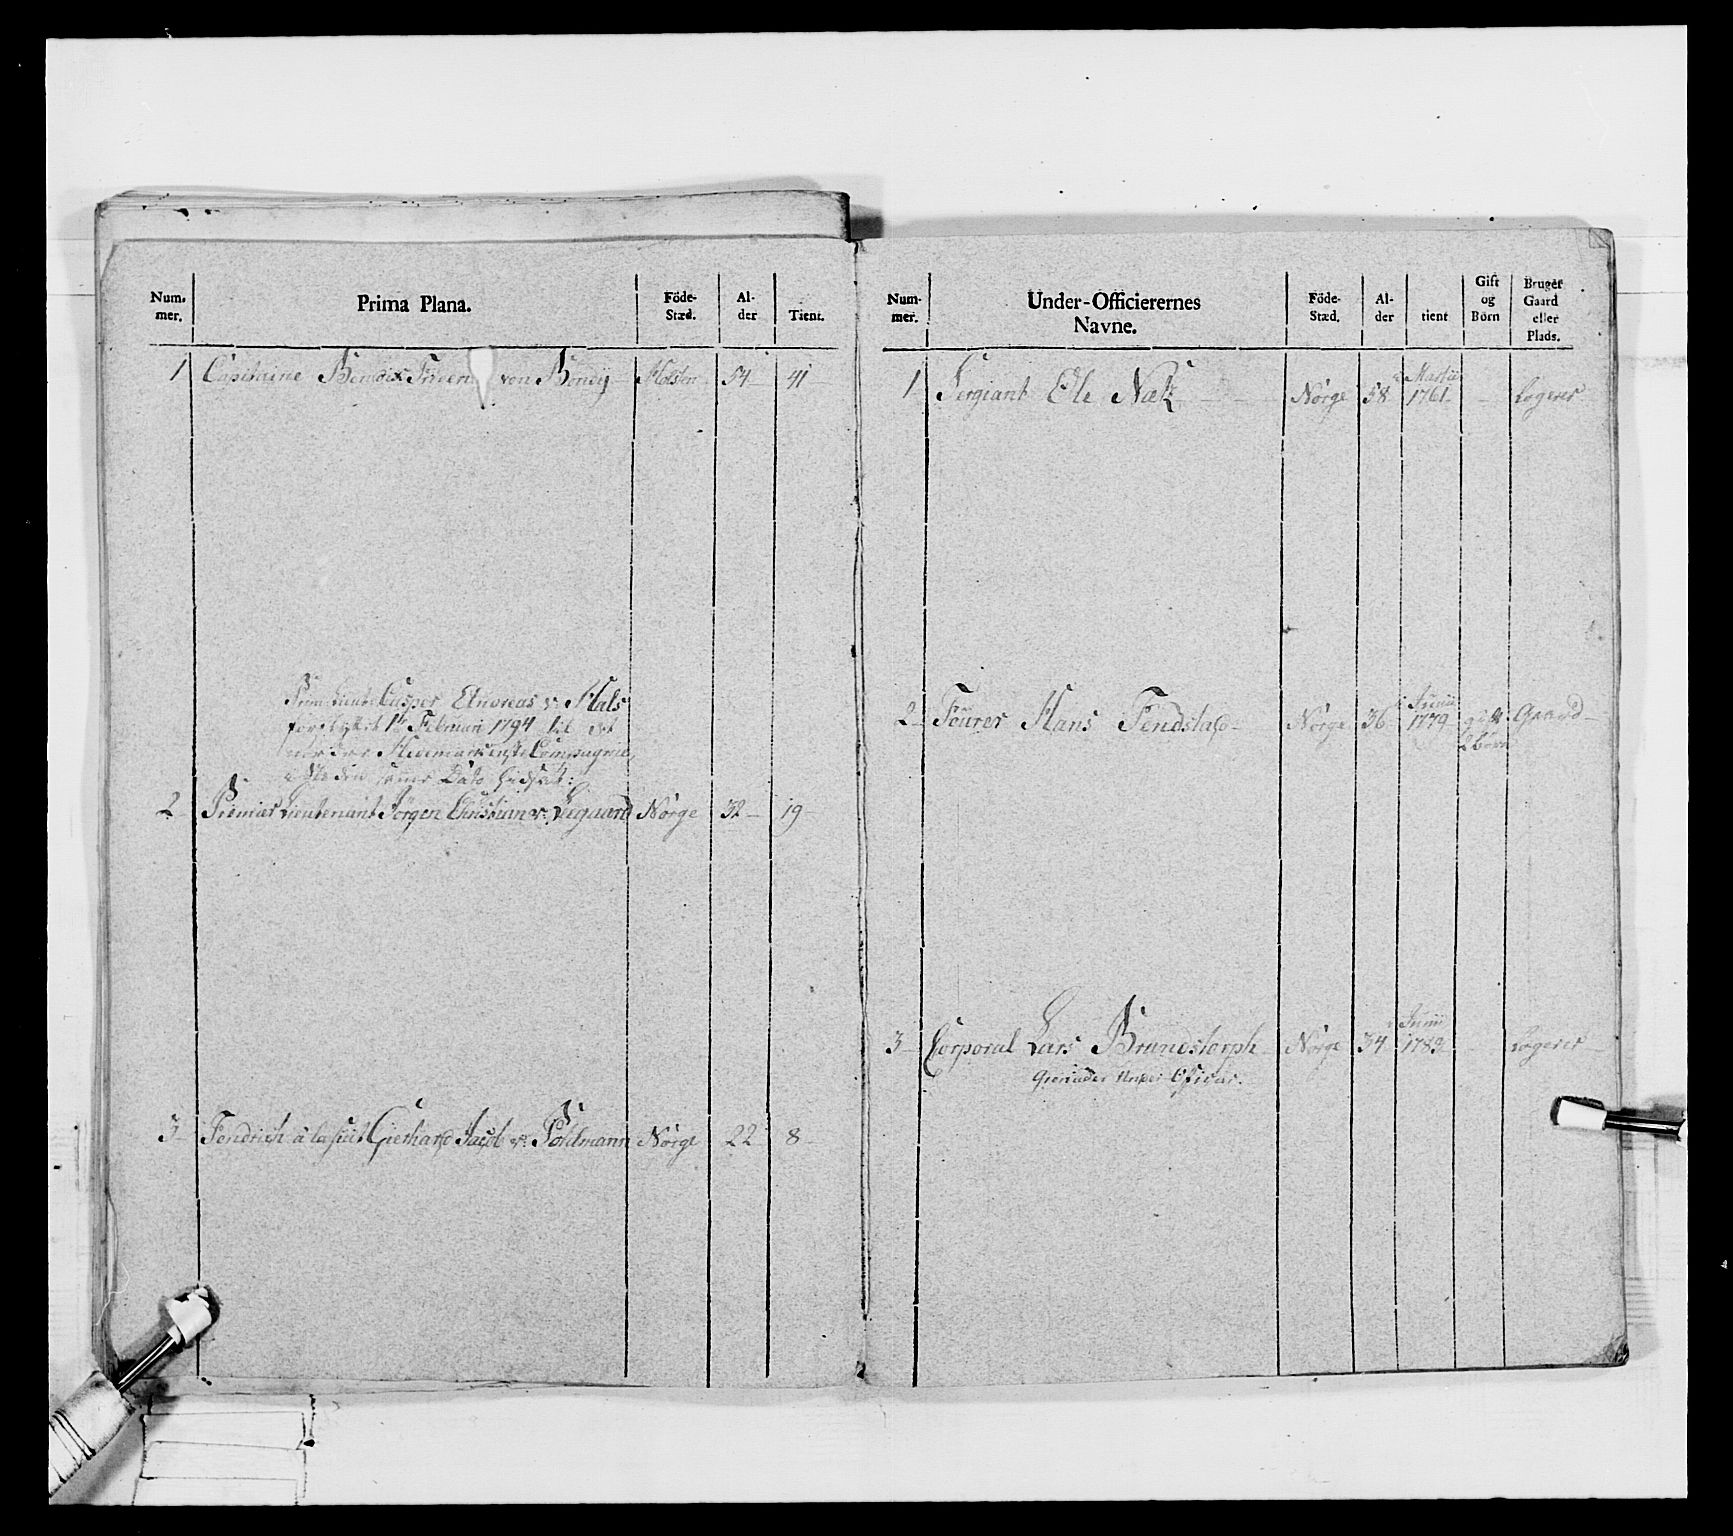 Num-
mer.
Prima Plana.
Föde-
Stæd.
Al-
der
Tient.
1 Capitaine Bendix von Holsten 54 41
Prem: Lieut: Casper Andreas v: Hals
forflyttet 1te Februari 1794 til det
Compagnie,
Dato
2 Premier Lieutenant Jörgen Christian v: Norge 32 19
3 Fendrich a la suit Gierhard Jacob v: Poldmann Norge 22 8
Num-
mer.
Under-Officierernes
Navne.
Föde-
Stæd.
Al-
der
tient
Gift
og
Börn
Bruger
Gaard
eller
Plads.
1 Sergiant Ole Næk Norge 58 Martii 1761 Logerer
2 Fourer Hans Fendstad Norge 36 Junii 1779 gift 2 börn Gaard
3 Corporal Lars Brandstorph Norge 34 Junii 1782 Logerer
Grenader Under Officier.